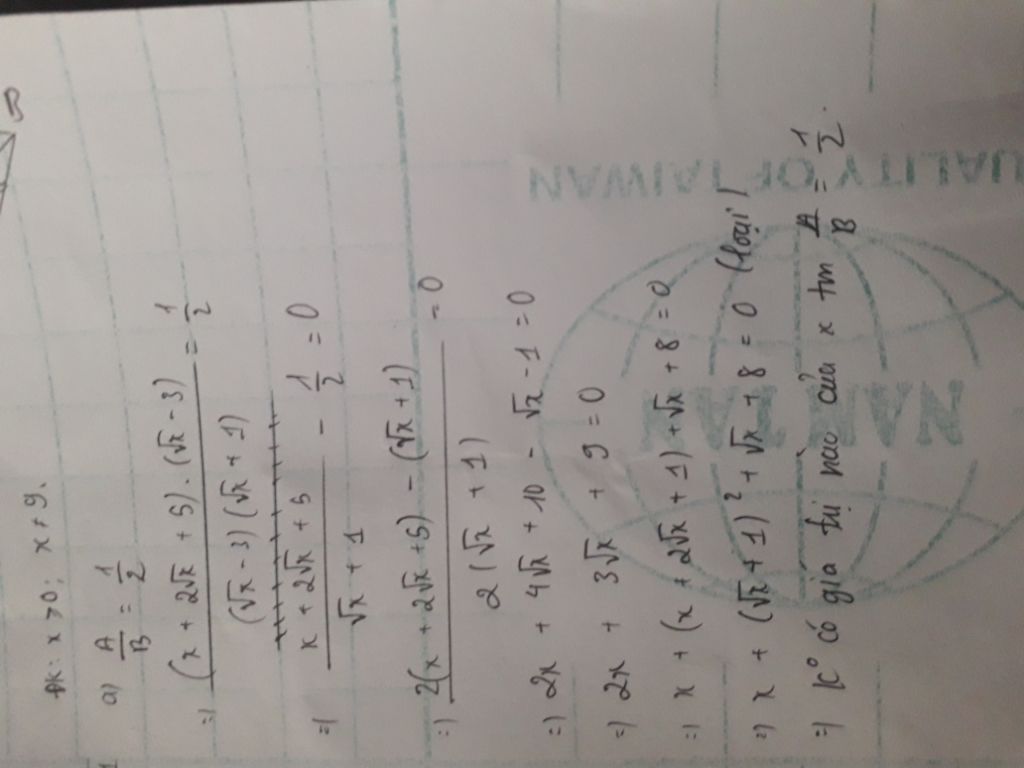 ĐK: x > 0; x ≠ 9.
a) A/B = 1/2
=) (x + 2√x + 5).(√x - 3) / (√x - 3)(√x + 1) = 1/2
=) x + 2√x + 5 / √x + 1 - 1/2 = 0
=) 2(x + 2√x + 5) - (√x + 1) / 2(√x + 1) = 0
=) 2x + 4√x + 10 - √x - 1 = 0
=) 2x + 3√x + 9 = 0
=) x + (x + 2√x + 1) + √x + 8 = 0
=) x + (√x + 1)² + √x + 8 = 0 (loại)
=) K° có giá trị nào của x tm A/B = 1/2.
B
UALITY OF TAIWAN
NAM